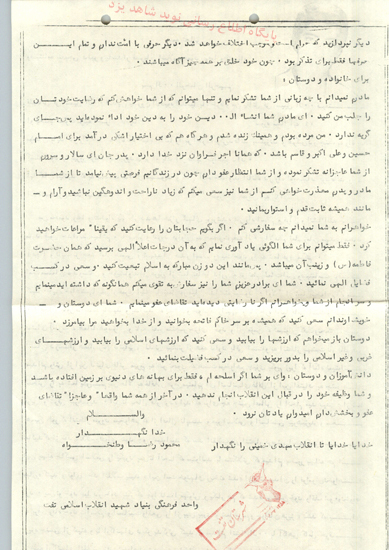 پایگاه اطلاع رسانی نوید شاهد یزد
دیگر نپردازید که حرام است و موجب اختلاف خواهد شد . دیگر حرفی با امت ندارم و تمام ایـــن
حرفها فقط برای تذکر بود . چون خود خلق بر همه چیز آگاه میباشند .
برای خانواده و دوستان :
مادرم نمیدانم با چه زبانی از شما تشکر نمایم و تنها میتوانم که از شما خواهش کنم که رضایت خود تـــان
را جلب من کنید . ای مادرم شما انشاء اله ... دیــن خود را به دین خود ادا نمودهاید پس جـــای
گریه ندارد . من مرده بودم و همینک زنده شدم و هرگاه هم که بی اختیار اشکی در آمد برای امـــام
حسین و علی اکبر و قاسم باشد . که همانا اجر فراوان نزد خدا دارد . پدر جان ای سالار و سرورم
از شما عاجزانه تشکر نموده و از شما انتظار عفو دارم چون در زندگانیم فرصتی پیش نیامد تا از شما
مادر و پدرم معذرت خواهی کنم از شما نیز سعی میکنم که زیاد ناراحت و اندوهگین نباشید و آرام و ــ
مانند همیشه ثابت قدم و استوار بمانید .
خواهرانم به شما نمیدانم چه سفارشی کنم . اگر بگویم حجابتان را رعایت کنید که یقینا" مراعات خواهید
کرد . فقط میتوانم برای شما الگوئی یاد آوری نمایم که به آن درجات اعلا الهی برسید که همان حضـرت
فاطمه (س) و زینب آن میباشد . پس مانند این دو زن مبارکه به اسلام تبعیت کنید . و سعی در کســب
فضایل الهی نمائید . شما ای برادر عزیزم شما را نیز سفارش به تقوی میکنم همانگونه که داشته اید مینمایم
و سرانجام از شما و خواهرانم اگر نارضایتی دیدهاید تقاضای عفو مینمایم . شما ای دوستان و ــ
خویشاوندانم سعی کنید که همیشه بر سر خاکم فاتحه بخوانید و از خدا بخواهید مرا بیامرزد .
دوستان باز میخواهم که ارزشها را بیابید و سعی کنید که ارزشهای اسلامی را بیابید و ارزشهـــای
غربی و غیر اسلامی را بدور بریزید و سعی در کسب فضیلت بنمائید .
دانش آموزان و دوستان : وای بر شما اگر اسلحه ام فقط برای بهانه های دنیوی بر زمین افتاده باشـــد
و شما وظیفه خود را در قبال این انقلاب انجام ندهید . در آخر از همه شما واقعا" و عاجزا" تقاضای
عفو و بخشش دارم امیدوارم یادتان نرود .
والســـــلام
خدا نگهـــــدار
محمود رضا وطنخــواه
خدایا خدایا تا انقلاب مهدی خمینی را نگهدار
واحد فرهنگی بنیاد شهید انقلاب اسلامی تفت